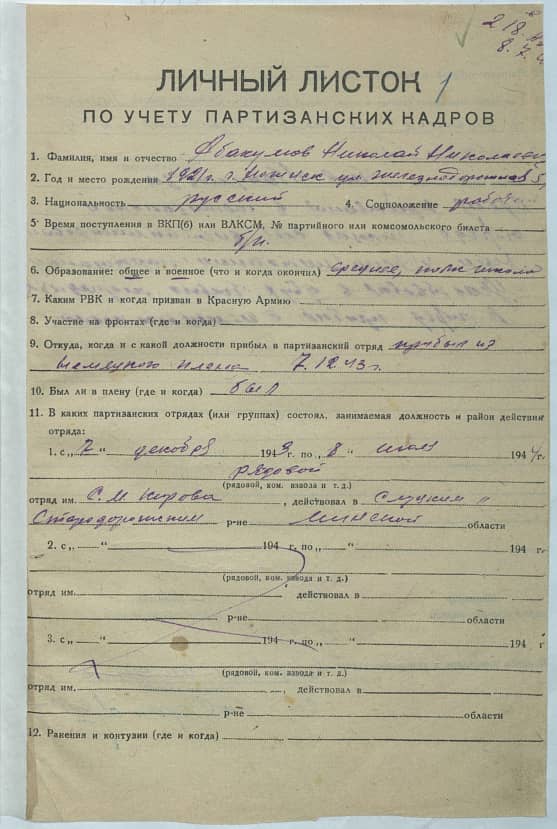 2 18
8. 7.
ЛИЧНЫЙ ЛИСТОК 1
ПО УЧЕТУ ПАРТИЗАНСКИХ КАДРОВ
1. Фамилия, имя и отчество Абакумов Николай Николаевич
2. Год и место рождения 1921 г. г. ул. Железнодорожная 5
3. Национальность русский 4. Соцположение рабочий
5. Время поступления в ВКП(б) или ВЛКСМ, № партийного или комсомольского билета
б/п.
6. Образование: общее и военное (что и когда окончил) среднее, полк школа
7. Каким РВК и когда призван в Красную Армию
8. Участие на фронтах (где и когда)
9. Откуда, когда и с какой должности прибыл в партизанский отряд прибыл из
немецкого плена 7.12.43 г.
10. Был ли в плену (где и когда) был
11. В каких партизанских отрядах (или группах) состоял, занимаемая должность и район действия
отряда:
1. с „7“ декабря 1943 г. по „8“ июля 1944 г.
рядовой
(рядовой, ком. взвода и т. д.)
отряд им. С. М. Кирова, действовал в Слуцким и
Стародорожским р-не Минской области
2. с „ “ 194 г. по „ “ 194 г
(рядовой, ком. взвода и т. д.)
отряд им. , действовал в
р-не области
3. с „ “ 194 г. по „ “ 194 г
(рядовой, ком. взвода и т. д.)
отряд им. , действовал в
р-не области
12. Ранения и контузии (где и когда)